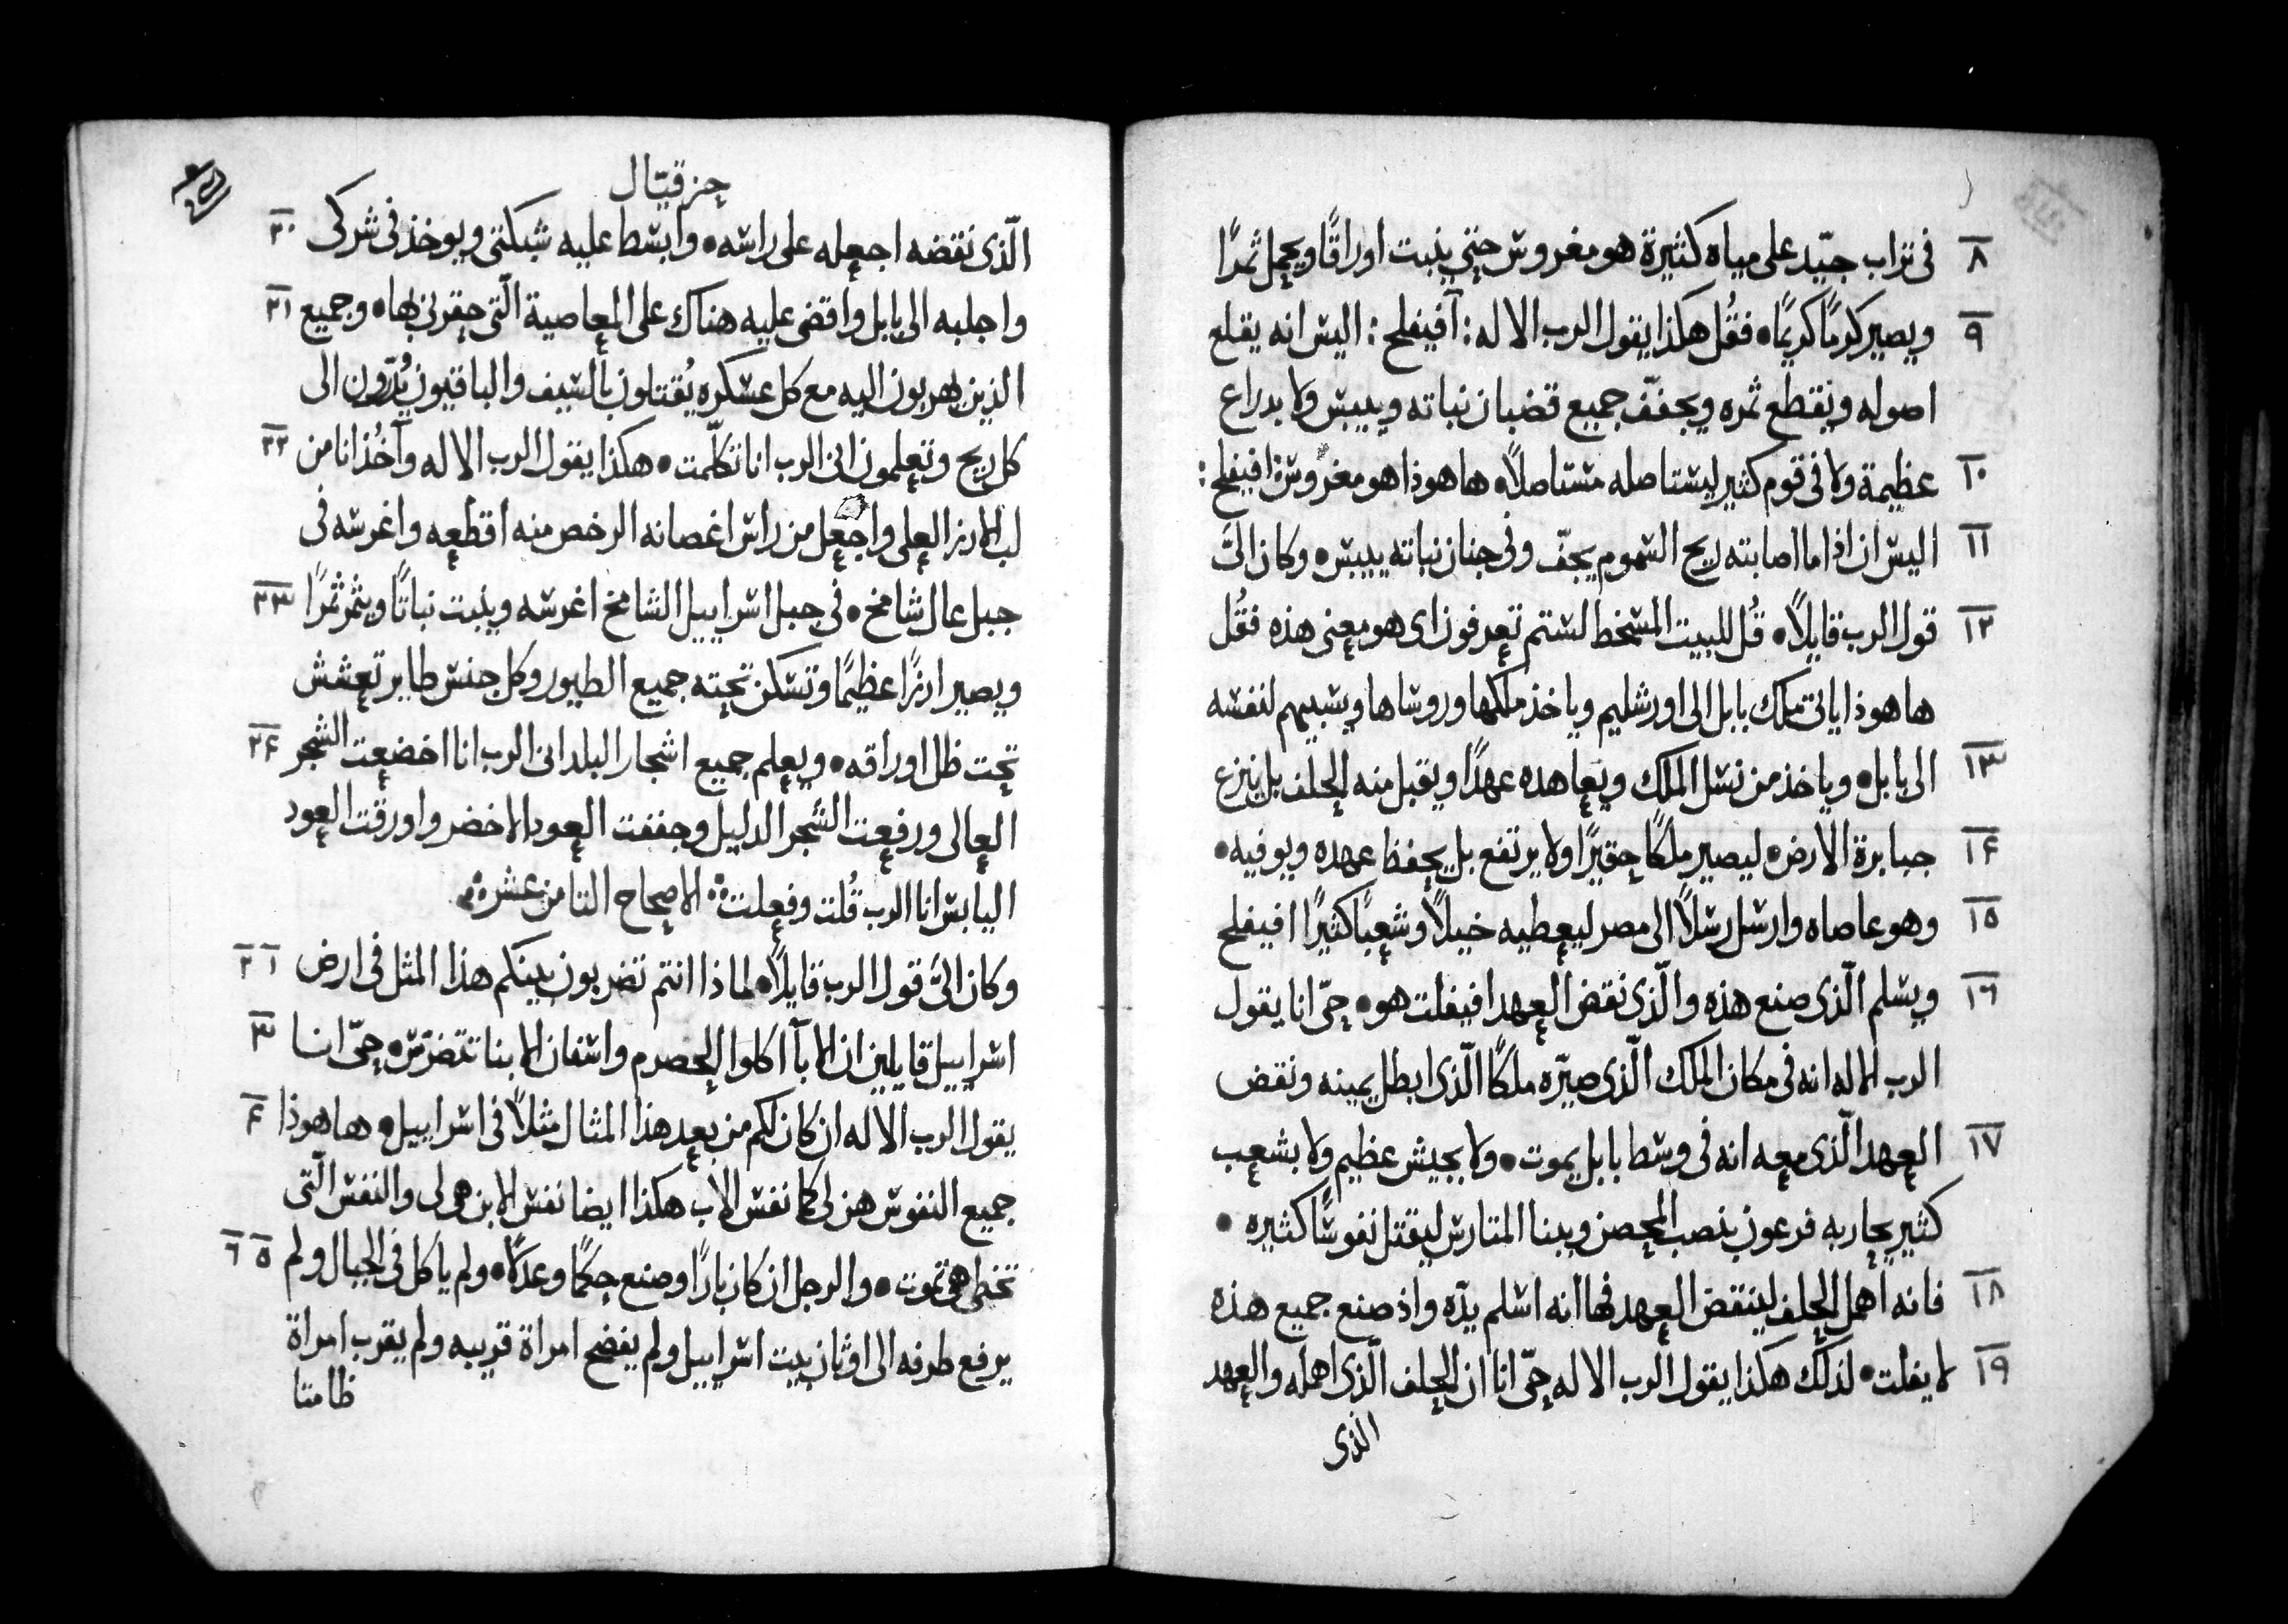 ٨ فى تراب جيّد على مياه كثيرة هو مغروس حتى ينبت اوراقًا ويحمل ثمرًا
٩ ويصير كرمًا كريمًا • فقُل هكذا يقول الرب الاله : آفينفلح : اليس انه يقلع
اصوله ويقطع ثمره ويجفّف جميع قضبان نباته وييبس ولا بدراع
١٠ عظيمة ولا فى قوم كثير ليستاصله مستاصلاً • ها هوذا هو مغروس افيفلح :
١١ اليس ان اذا ما اصابته ريح السموم يجفّ وفى جنان نباته ييبس • وكان الىَّ
١٢ قول الرب قايلاً • قُل للبيت المسخط لستم تعرفون اى هو معنى هذه فقُل
ها هوذا ياتى ملك بابل الى اورشليم وياخذ ملكها وروساها ويسبيهم لنفسه
١٣ الى بابل • وياخذ من نسل الملك ويعاهده عهدًا ويقبل منه الحلف بل ينزع
١۴ جبابرة الارض • ليصير ملكًا حقيرًا ولا يرتفع بل يحفظ عهده ويوفيه •
١٥ وهو عاصاه وارسل رسلاً الى مصر ليعطيه خيلاً وشعبًا كثيرًا افيفلح
١٦ ويسلم الّذى صنع هذه والّذى نقض العهد افيفلت هو • حىّ انا يقول
الرب الاله انه فى مكان الملك الّذى صيّره ملكًا الّذى ابطل يمينه ونقض
١٧ العهد الّذى معه انه فى وسط بابل يموت • ولا بجيش عظيم ولا بشعب
كثير يحاربه فرعون بنصب المحصن وبنا المتارس ليقتل نفوسًا كثيره •
١٨ فانه اهمل الحلف لينقض العهد فها انه اسلم يدّه واذ صنع جميع هذه
١٩ لا يفلت • لذلك هكذا يقول الرب الاله حىّ انا ان الحلف الّذى اهمله والعهد
الذى
حزقيّال
الّذى نقضه اجعله على راسه • وابسط عليه شبكتى ويوخذ فى شركى ٢٠
واجلبه الى بابل واقضى عليه هناك على المعاصية الّتى حقرنى بها • وجميع ٢١
الذين يهربون اليه مع كل عسكره يُقتلون بالسيف والباقيون يُدرّون الى
كل ريح وتعلمون انى الرب انا تكلّمت • هكذا يقول الرب الاله وآخُذ انا من ٢٢
لب الارز العلى واجعل من راس اغصانه الرخص منه اقطعه واغرسه فى
جبل عال شامخ • فى جبل اسراييل الشامخ اغرسه وينبت نباتًا ويثمر ثمرًا ٢٣
ويصير ارزًا عظيمًا وتسكن تحته جميع الطيور وكل جنس طاير تعشش
تحت ظل اوراقه • ويعلم جميع اشجار البلد انى الرب انا اخضعت الشجر ٢۴
العالى ورفعت الشجر الدليل وجففت العود الاخضر واورقت العود
اليابس انا الرب قُلت وفعلت ⁘ الاصحاح الثامن عشر ⁘
وكان الىَّ قول الرب قايلاً • لماذا انتم تضربون بينكم هذا المثل فى ارض ١ ٢
اسراييل قايلين ان الابآ اكلوا الحصرم واسنان الابنا تتضرّس • حىّ انا ٣
يقول الرب الاله ان كان لكم من بعد هذا المثال مثلاً فى اسراييل • ها هوذا ۴
جميع النفوس هن لى كما نفس الاب هكذا ايضا نفس الابن هى لى والنفس الّتى
تخطى هى تموت • والرجل ان كان بارًا وصنع حكمًا وعدلاً • ولم ياكل فى الجبال ولم ٥ ٦
يرفع طرفه الى اوثان بيت اسراييل ولم يفضح امراة قريبه ولم يقرب امراة
طامثا